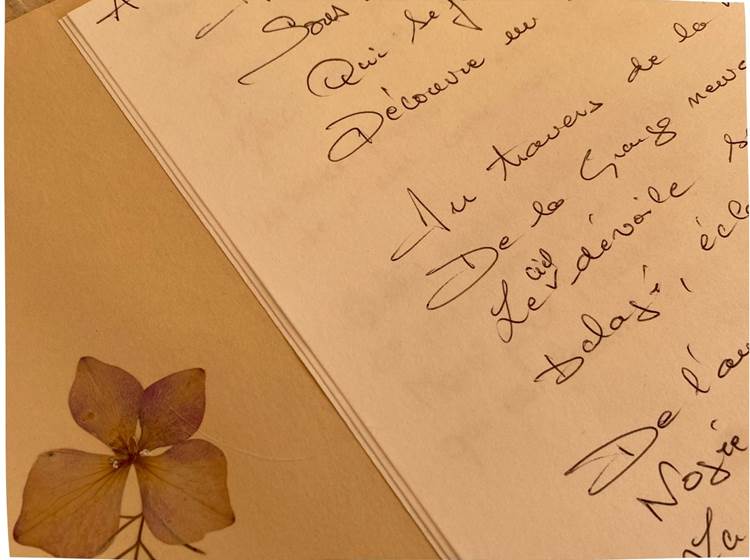 A
Sous
Qui se
Découvre un
Au travers de la
De la Grange
Le ciel dévoile s
Delavé, écl
De l'au
Noyée
La